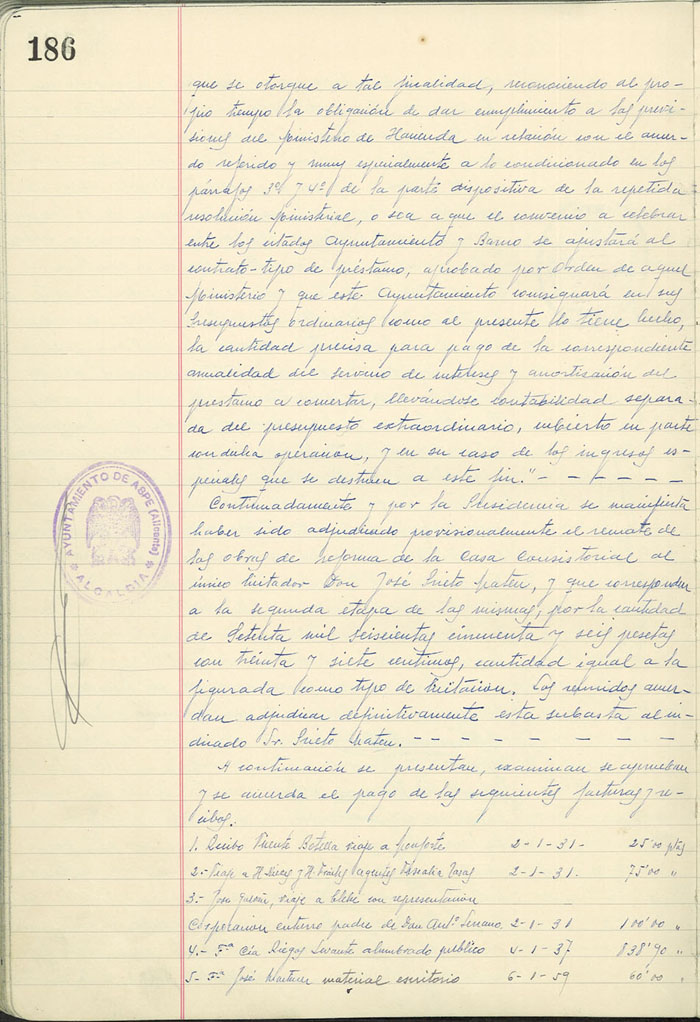 186
que se otorgue a tal finalidad, reconociendo al pro-
pio tiempo la obligación de dar cumplimiento a las previ-
siones del Ministerio de Hacienda en relación con el acuer-
do referido y muy especialmente a lo condicionado en los
párrafos 3º y 4º de la parte dispositiva de la repetida
resolución Ministerial, o sea a que el convenio a celebrar
entre los citados Ayuntamiento y Banco se ajustará al
contrato-tipo de préstamo, aprobado por Orden de aquel
Ministerio y que este Ayuntamiento consignará en sus
Presupuestos ordinarios como al presente lo tiene hecho,
la cantidad precisa para pago de la correspondiente
anualidad del servicio de intereses y amortización del
préstamo a concertar, llevándose contabilidad separa-
da del presupuesto extraordinario, cubierto en parte
con dicha operación, y en su caso de los ingresos es-
peciales que se destinen a este fin."- - - - - -
Continuadamente y por la Presidencia se manifiesta
haber sido adjudicado provisionalmente el remate de
las obras de reforma de la Casa Consistorial al
único licitador Don José Prieto Mateu, y que corresponden
a la segunda etapa de las mismas, por la cantidad
de Setenta mil seiscientas cincuenta y seis pesetas
con treinta y siete centimos, cantidad igual a la
figurada como tipo de licitación. Los reunidos acuer-
dan adjudicar definitivamente esta subasta al in-
dicado Sr. Prieto Mateu. - - - - - - - - -
A continuación se presentan, examinan se aprueban
y se acuerda el pago de las siguientes facturas y re-
cibos.
1. Recibo Vicente Botella viaje a Monforte 2-1-31- 25'00 ptas
2.- Viaje a agentes Fiscalia Tasas 2-1-31. 75'00 "
3.- José viaje a Elche con representación
Corporación entierro padre de Don Antº Serrano 2-1-31 100'00 "
4.- Fra Cia Riegos Levante alumbrado publico 4-1-37 838'90 "
5- Fra José Martinez material escritorio 6-1-59 60'00 "
AYUNTAMIENTO DE ASPE (Alicante)
ALCALDIA